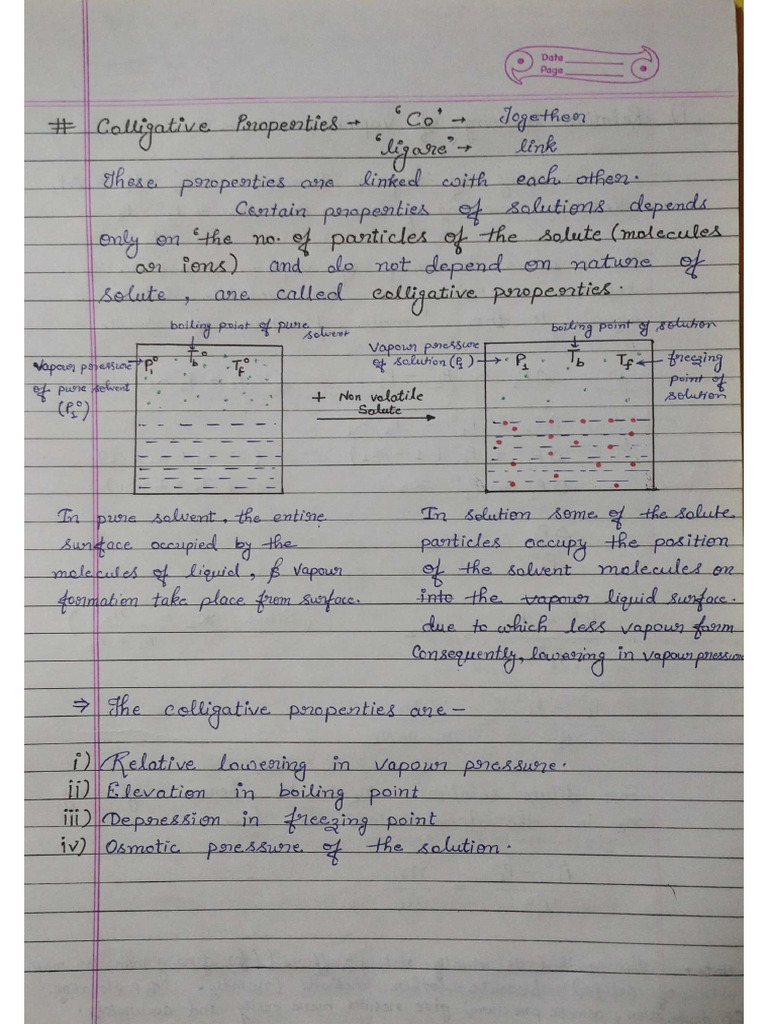 Date
Page
# Colligative Properties → 'Co' → Together
"ligare" → link
These properties are linked with each other.
Certain properties of solutions depends
only on 'the no. of particles of the solute (molecules
or ions) and do not depend on nature of
solute, are called colligative properties.
boiling point of pure solvent
Vapour pressure of pure solvent (P₁°)
P₁° T_b° T_f°
+ Non volatile
Solute
boiling point of solution
Vapour pressure of solution (P₁)
P₁ T_b T_f
freezing point of solution
In pure solvent, the entire
surface occupied by the
molecules of liquid, & vapour
formation take place from surface.
In solution some of the solute
particles occupy the position
of the solvent molecules on
into the vapour liquid surface.
due to which less vapour form
Consequently, lowering in vapour pression
⇒ The colligative properties are –
i) Relative lowering in vapour pressure.
ii) Elevation in boiling point
iii) Depression in freezing point
iv) Osmotic pressure of the solution.